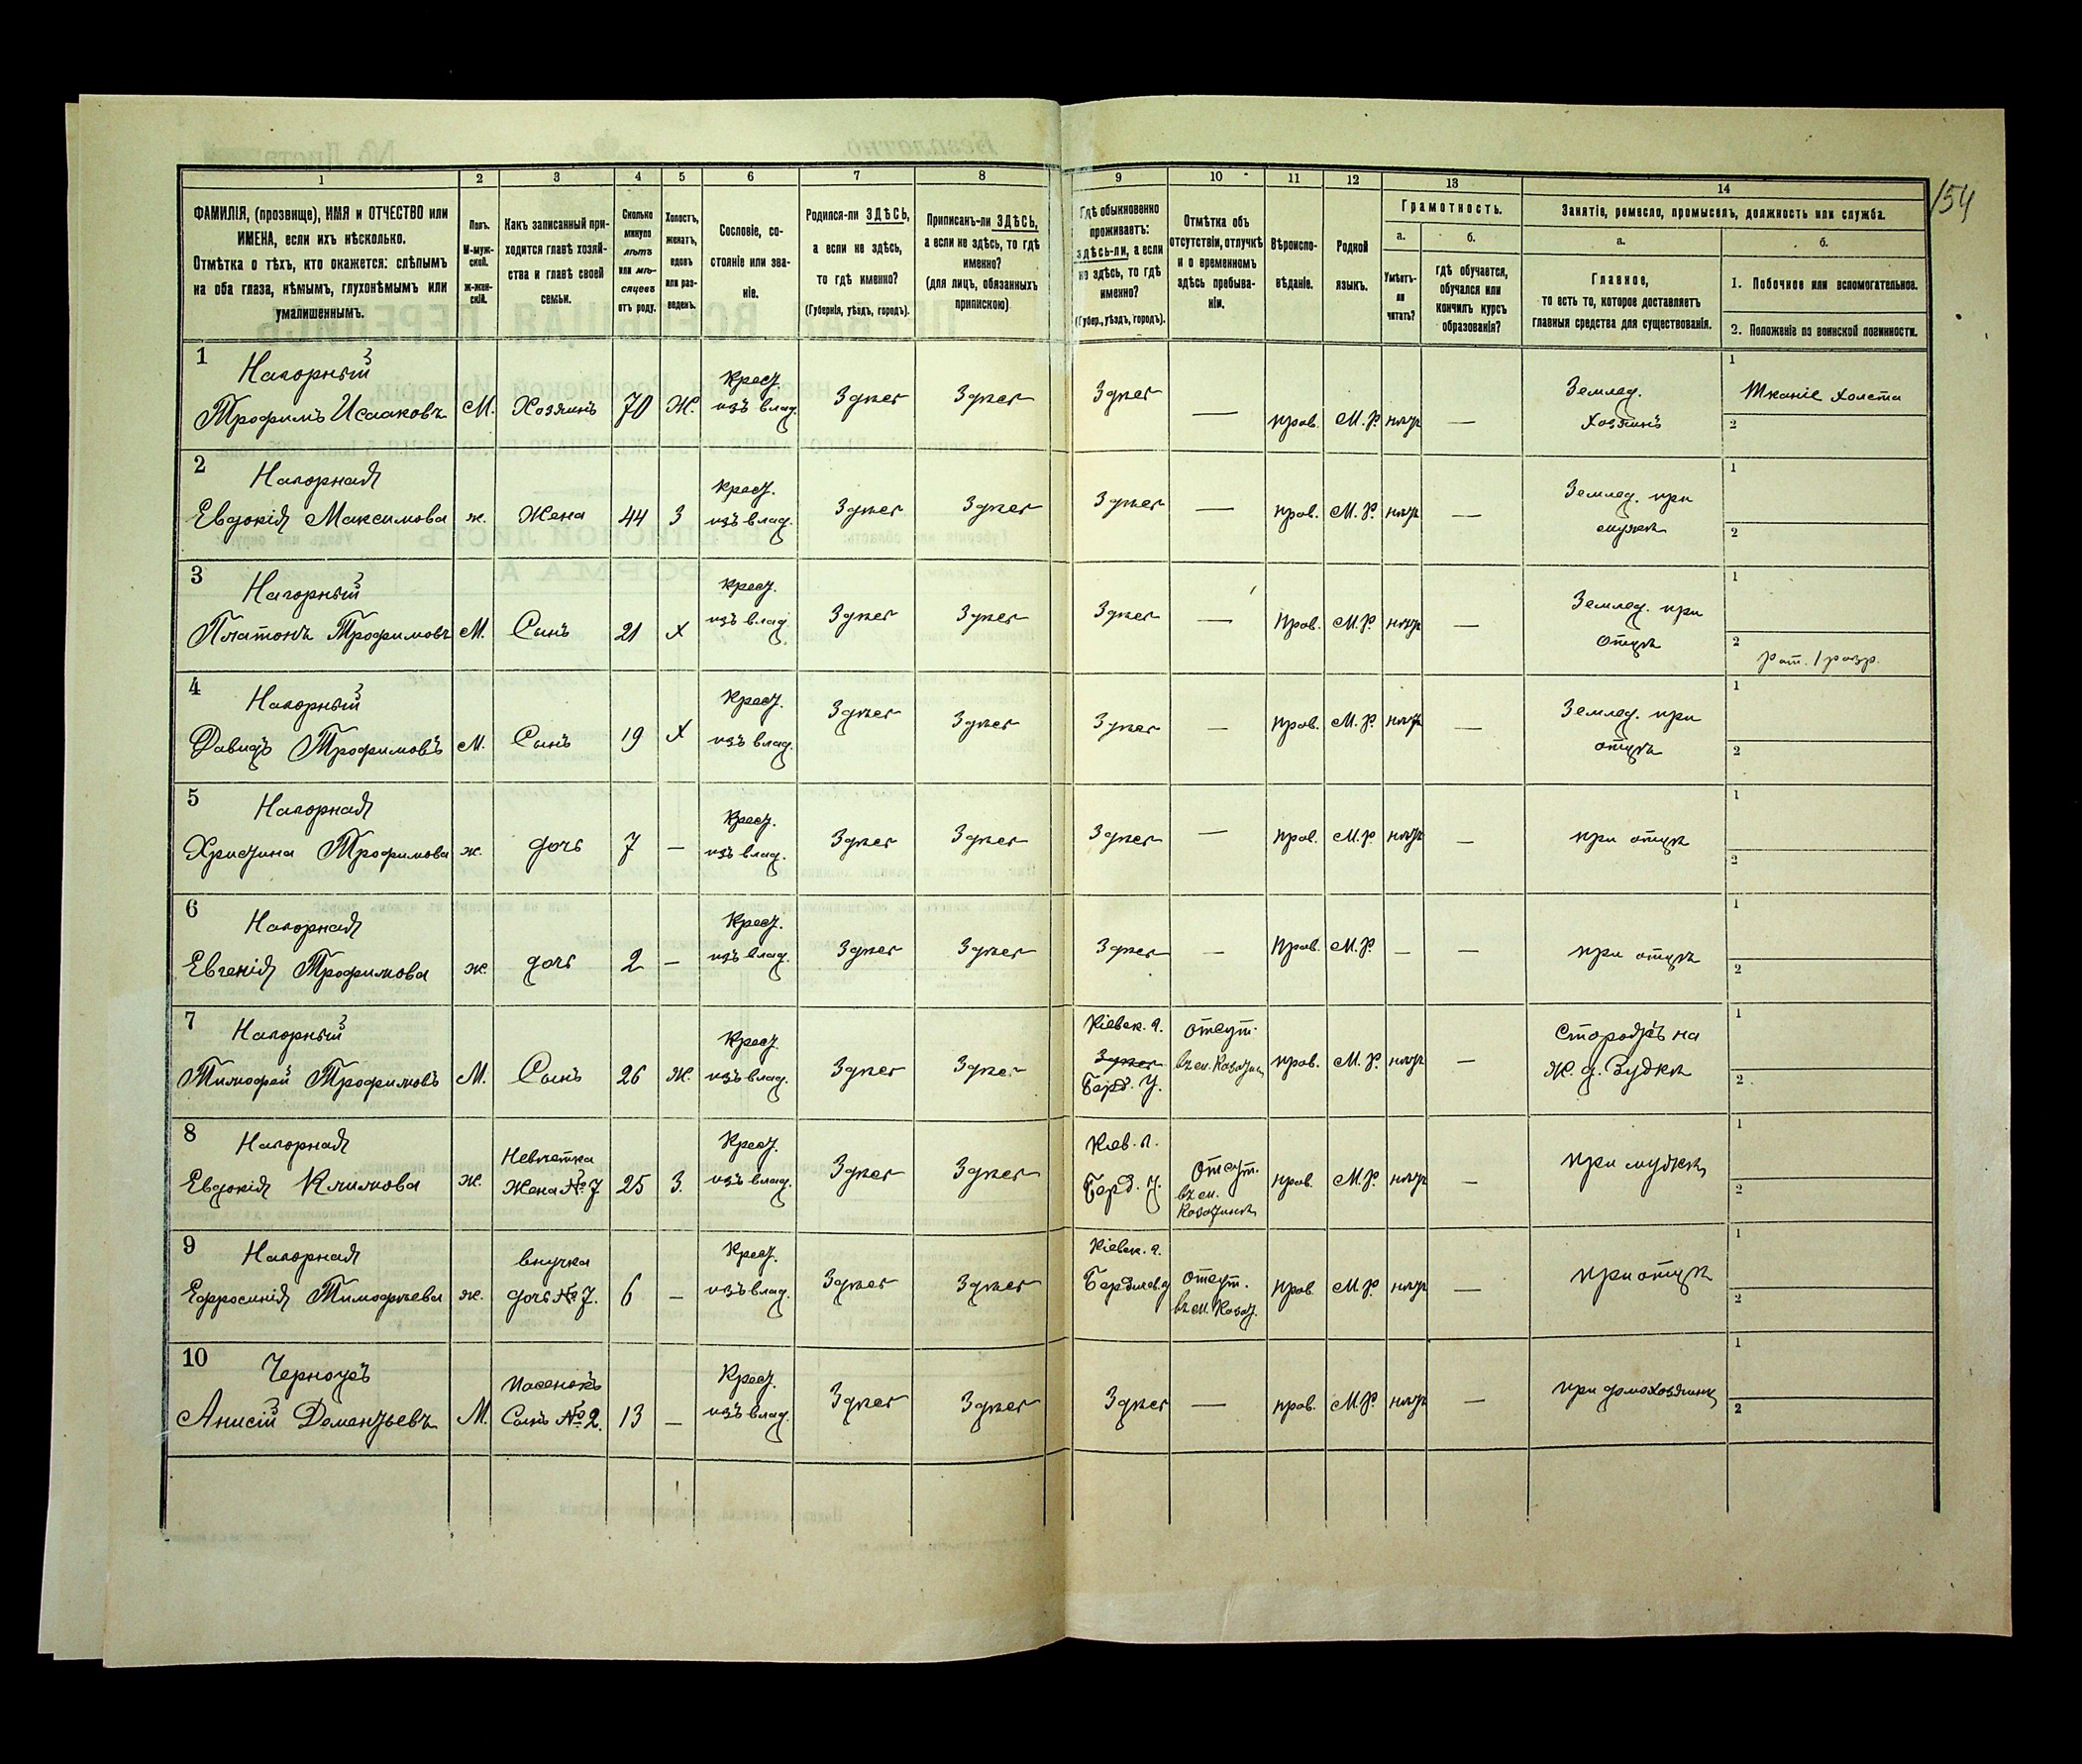 154
1 2 3 4 5 6 7 8 9 10 11 12 13 14
ФАМИЛІЯ, (прозвище), ИМЯ и ОТЧЕСТВО или
ИМЕНА, если ихъ нѣсколько.
Отмѣтка о тѣхъ, кто окажется: слѣпымъ
на оба глаза, нѣмымъ, глухонѣмымъ или
умалишеннымъ.
Полъ.
М-муж-
ской.
Ж-жен-
скій.
Какъ записанный при-
ходится главѣ хозяй-
ства и главѣ своей
семьи.
Сколько
минуло
лѣтъ
или мѣ-
сяцевъ
отъ роду.
Холостъ,
женатъ,
вдовъ
или раз-
веденъ.
Сословіе, со-
стояніе или зва-
ніе.
Родился-ли ЗДѢСЬ,
а если не здѣсь,
то гдѣ именно?
(Губернія, уѣздъ, городъ).
Приписанъ-ли ЗДѢСЬ,
а если не здѣсь, то гдѣ
именно?
(для лицъ, обязанныхъ
припискою)
Гдѣ обыкновенно
проживаетъ:
здѣсь-ли, а если
не здѣсь, то гдѣ
именно?
(Губер., уѣздъ, городъ).
Отмѣтка объ
отсутствіи, отлучкѣ
и о временномъ
здѣсь пребыва-
ніи.
Вѣроиспо-
вѣданіе.
Родной
языкъ.
Грамотность.
а.
Умѣетъ-
ли
читать?
б.
гдѣ обучается,
обучался или
кончилъ курсъ
образованія?
Занятіе, ремесло, промыселъ, должность или служба.
а.
Главное,
то есть то, которое доставляетъ
главныя средства для существованія.
б.
1. Побочное или вспомогательное.
2. Положеніе по воинской повинности.
1 Нагорный
Трофимъ Исааковъ М. Хозяинъ 70 Ж. Крест. изъ влад. Здѣсь Здѣсь Здѣсь — прав. М.Р. нѣтъ — Землед. хозяинъ 1 Тканіе холста 2
2 Нагорная
Евдокія Максимова ж. Жена 44 З Крест. изъ влад. Здѣсь Здѣсь Здѣсь — прав. М.Р. нѣтъ — Землед. при мужѣ 1 2
3 Нагорный
Платонъ Трофимовъ М. Сынъ 21 Х Крест. изъ влад. Здѣсь Здѣсь Здѣсь — прав. М.Р. нѣтъ — Землед. при отцѣ 1 2 рат. 1 разр.
4 Нагорный
Давидъ Трофимовъ М. Сынъ 19 Х Крест. изъ влад. Здѣсь Здѣсь Здѣсь — прав. М.Р. нѣтъ — Землед. при отцѣ 1 2
5 Нагорная
Христина Трофимова ж. дочь 7 — Крест. изъ влад. Здѣсь Здѣсь Здѣсь — прав. М.Р. нѣтъ — при отцѣ 1 2
6 Нагорная
Евгенія Трофимова ж. дочь 2 — Крест. изъ влад. Здѣсь Здѣсь Здѣсь — прав. М.Р. — — при отцѣ 1 2
7 Нагорный
Тимофей Трофимовъ М. Сынъ 26 Ж. Крест. изъ влад. Здѣсь Здѣсь Кіевск. г. Здѣсь Берд. у. отсут. въ м. прав. М.Р. нѣтъ — Сторожъ на ж. д. будкѣ 1 2
8 Нагорная
Евдокія Климова ж. Невѣстка Жена №7 25 З. Крест. изъ влад. Здѣсь Здѣсь Кіев. г. Берд. у. Отсут. въ м. Козатинѣ прав. М.Р. нѣтъ — при мужѣ 1 2
9 Нагорная
Ефросинія Тимофѣева ж. внучка дочь №7. 6 — Крест. изъ влад. Здѣсь Здѣсь Кіевск. г. Бердич. у отсут. въ м. Козат. прав. М.Р. нѣтъ — при отцѣ 1 2
10 Черноусъ
Анисій Дементьевъ М. Пасенокъ Сынъ №2. 13 — Крест. изъ влад. Здѣсь Здѣсь Здѣсь — прав. М.Р. нѣтъ — при домохозяинѣ 1 2